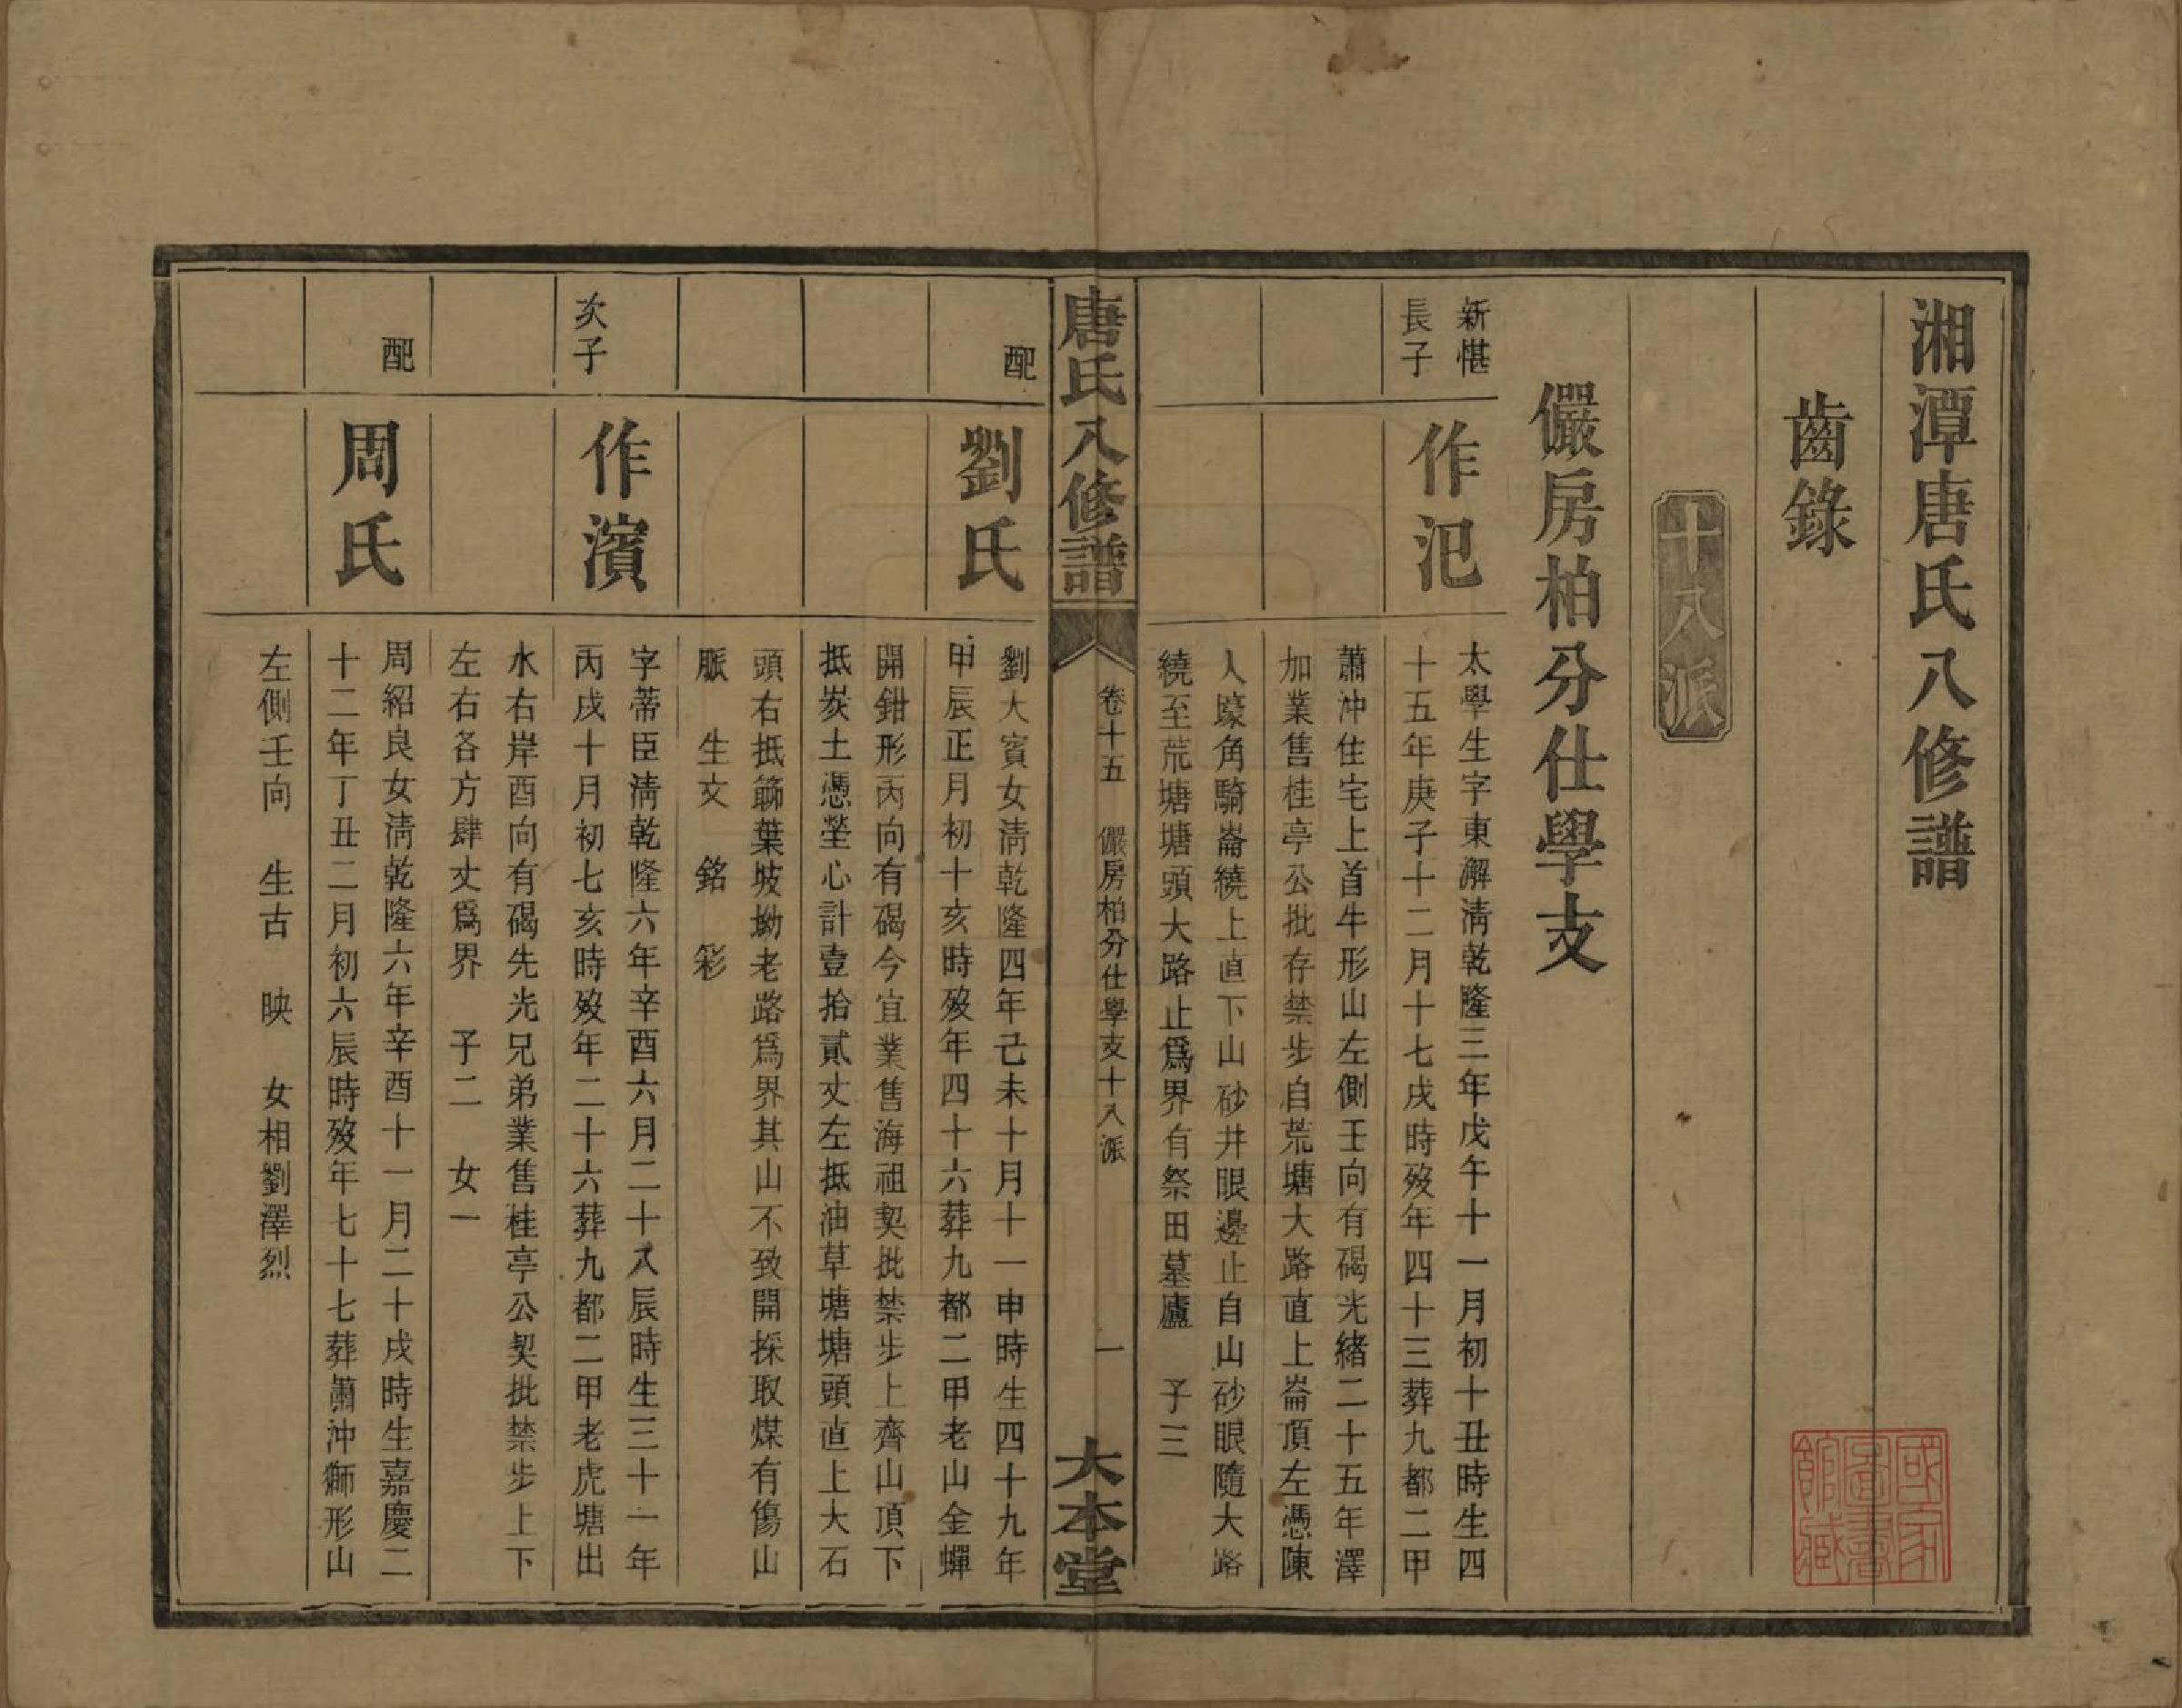 湘潭唐氏八修譜
齒錄
十八派
儼房柏分仕學支
新愖
長子
作氾
太學生字東澥淸乾隆三年戊午十一月初十丑時生四
十五年庚子十二月十七戌時歿年四十三葬九都二甲
蕭冲住宅上首牛形山左側壬向有碣光緒二十五年澤
加業售桂亭公批存禁步自荒塘大路直上崙頂左憑陳
人壕角騎崙繞上直下山砂井眼邊止自山砂眼隨大路
繞至荒塘塘頭大路止爲界有祭田墓廬　子三
唐氏八修譜
卷十五　儼房柏分仕學支十八派
一
大本堂
配
劉氏
劉大賓女淸乾隆四年己未十月十一申時生四十九年
甲辰正月初十亥時歿年四十六葬九都二甲老山金蟬
開鉗形丙向有碣今宜業售海祖契批禁步上齊山頂下
抵炭土憑塋心計壹拾貳丈左抵油草塘塘頭直上大石
頭右抵篛葉坡坳老路爲界其山不致開採取煤有傷山
脈　生文　銘　彩
次子
作濱
字蒂臣淸乾隆六年辛酉六月二十八辰時生三十一年
丙戌十月初七亥時歿年二十六葬九都二甲老虎塘出
水右岸酉向有碣先光兄弟業售桂亭公契批禁步上下
左右各方肆丈爲界　子二　女一
配
周氏
周紹良女淸乾隆六年辛酉十一月二十戌時生嘉慶二
十二年丁丑二月初六辰時歿年七十七葬蕭冲獅形山
左側壬向　生古　映　女相劉澤烈
國家圖書館藏